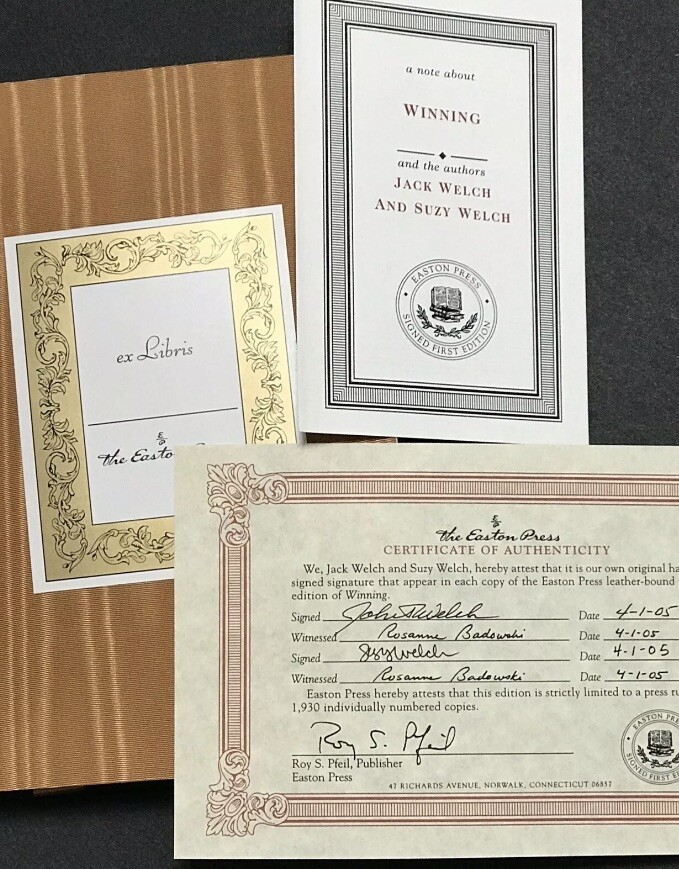 a note about
WINNING
and the authors
JACK WELCH
AND SUZY WELCH
EASTON PRESS
SIGNED FIRST EDITION
ex Libris
E/P
the Easto
E/P
the Easton Press
CERTIFICATE OF AUTHENTICITY
We, Jack Welch and Suzy Welch, hereby attest that it is our own original ha
signed signature that appear in each copy of the Easton Press leather-bound
edition of Winning.
Signed John F Welch Date 4-1-05
Witnessed Rosanne Badowski Date 4-1-05
Signed Suzy Welch Date 4-1-05
Witnessed Rosanne Badowski Date 4-1-05
Easton Press hereby attests that this edition is strictly limited to a press ru
1,930 individually numbered copies.
Roy S. Pfeil
Roy S. Pfeil, Publisher
Easton Press
47 RICHARDS AVENUE, NORWALK, CONNECTICUT 06857
EASTON PRE
SIGNED FIRST EDI